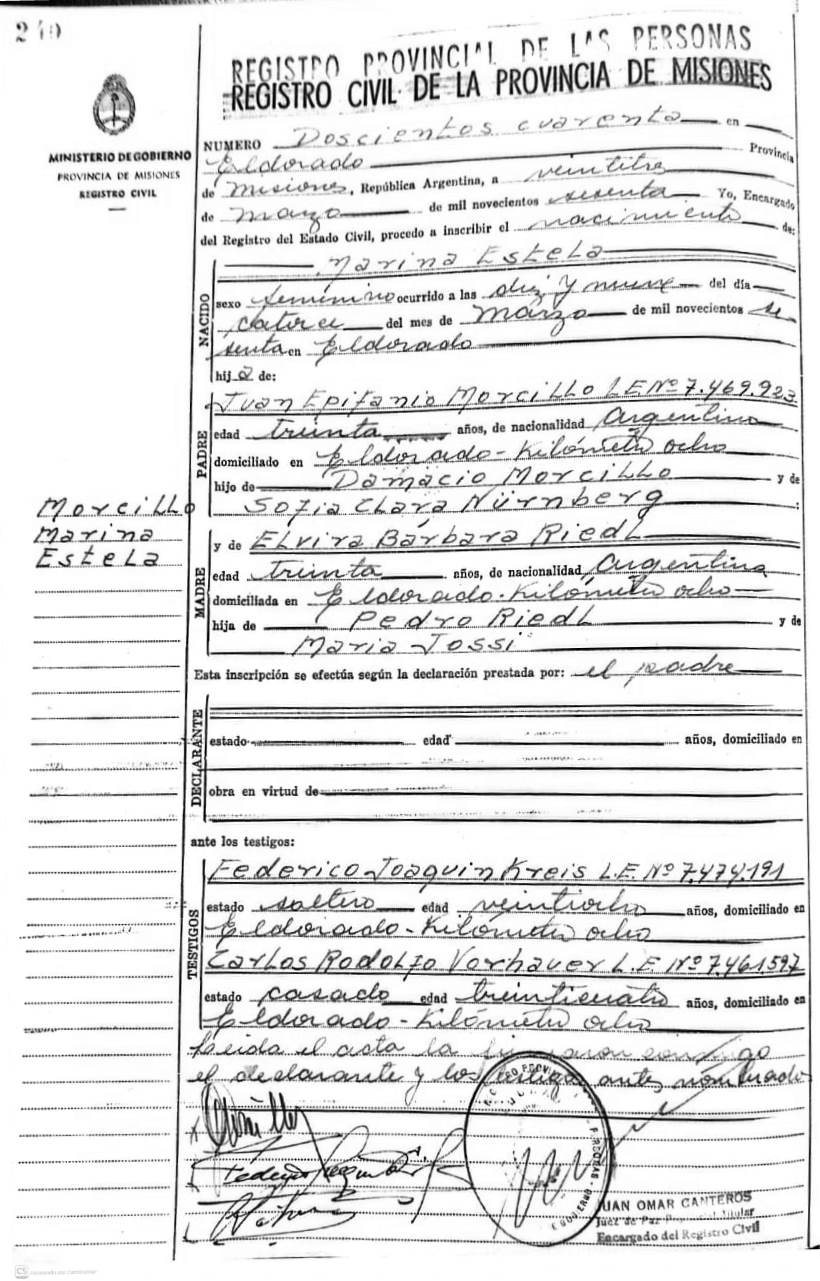 240
REGISTRO PROVINCIAL DE LAS PERSONAS
REGISTRO CIVIL DE LA PROVINCIA DE MISIONES
MINISTERIO DE GOBIERNO
PROVINCIA DE MISIONES
REGISTRO CIVIL
NUMERO Doscientos cuarenta en
Eldorado Provincia
de Misiones, República Argentina, a veintitres
de marzo de mil novecientos sesenta Yo, Encargado
del Registro del Estado Civil, procedo a inscribir el nacimiento de:
Marina Estela
NACIDO
sexo femenino ocurrido a las diez y nueve del día
catorce del mes de marzo de mil novecientos se
senta en Eldorado
hija de:
PADRE
Juan Epifanio Morcillo L.E. Nº 7.469.923
edad treinta años, de nacionalidad Argentina
domiciliado en Eldorado-Kilómetro ocho
hijo de Damacio Morcillo y de
Sofia Clara Nürnberg :
Morcillo
Marina
Estela
MADRE
y de Elvira Bárbara Riedl
edad treinta años, de nacionalidad Argentina
domiciliada en Eldorado-Kilómetro ocho
hija de Pedro Riedl y de
Maria Jossi
Esta inscripción se efectúa según la declaración prestada por: el padre
DECLARANTE
estado edad años, domiciliado en
obra en virtud de
ante los testigos:
TESTIGOS
Federico Joaquin Kreis L.E. Nº 7.474.191
estado soltero edad veintiocho años, domiciliado en
Eldorado-Kilómetro ocho
Carlos Rodolfo Vorhauer L.E Nº 7.461.597
estado casado edad treinticuatro años, domiciliado en
Eldorado-Kilómetro ocho
Leida el acta la firmaron conmigo
el declarante y los testigos antes nombrado
JUAN OMAR CANTEROS
Juez de Paz Titular
Encargado del Registro Civil
CS